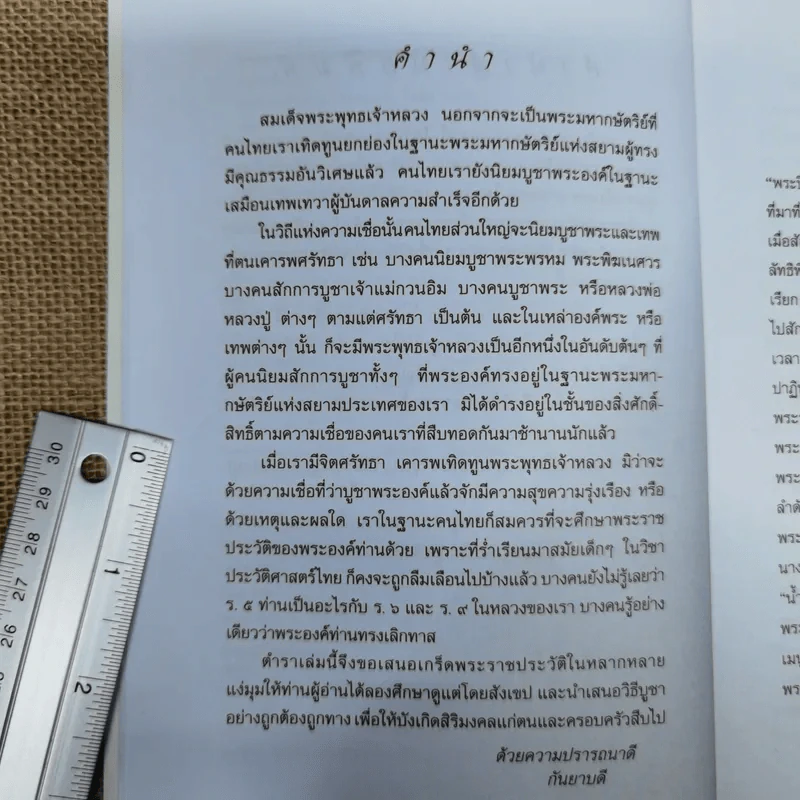 คำนำ
สมเด็จพระพุทธเจ้าหลวง นอกจากจะเป็นพระมหากษัตริย์ที่
คนไทยเราเทิดทูนยกย่องในฐานะพระมหากษัตริย์แห่งสยามผู้ทรง
มีคุณธรรมอันวิเศษแล้ว คนไทยเรายังนิยมบูชาพระองค์ในฐานะ
เสมือนเทพเทวาผู้บันดาลความสำเร็จอีกด้วย
ในวิถีแห่งความเชื่อนั้นคนไทยส่วนใหญ่จะนิยมบูชาพระและเทพ
ที่ตนเคารพศรัทธา เช่น บางคนนิยมบูชาพระพรหม พระพิฆเนศวร
บางคนสักการบูชาเจ้าแม่กวนอิม บางคนบูชาพระ หรือหลวงพ่อ
หลวงปู่ ต่างๆ ตามแต่ศรัทธา เป็นต้น และในเหล่าองค์พระ หรือ
เทพต่างๆ นั้น ก็จะมีพระพุทธเจ้าหลวงเป็นอีกหนึ่งในอันดับต้นๆ ที่
ผู้คนนิยมสักการบูชาทั้งๆ ที่พระองค์ทรงอยู่ในฐานะพระมหา-
กษัตริย์แห่งสยามประเทศของเรา มิได้ดำรงอยู่ในชั้นของสิ่งศักดิ์-
สิทธิ์ตามความเชื่อของคนเราที่สืบทอดกันมาช้านานนักแล้ว
เมื่อเรามีจิตศรัทธา เคารพเทิดทูนพระพุทธเจ้าหลวง มิว่าจะ
ด้วยความเชื่อที่ว่าบูชาพระองค์แล้วจักมีความสุขความรุ่งเรือง หรือ
ด้วยเหตุและผลใด เราในฐานะคนไทยก็สมควรที่จะศึกษาพระราช
ประวัติของพระองค์ท่านด้วย เพราะที่ร่ำเรียนมาสมัยเด็กๆ ในวิชา
ประวัติศาสตร์ไทย ก็คงจะถูกลืมเลือนไปบ้างแล้ว บางคนยังไม่รู้เลยว่า
ร. ๕ ท่านเป็นอะไรกับ ร. ๖ และ ร. ๙ ในหลวงของเรา บางคนรู้อย่าง
เดียวว่าพระองค์ท่านทรงเลิกทาส
ตำราเล่มนี้จึงขอเสนอเกร็ดพระราชประวัติในหลากหลาย
แง่มุมให้ท่านผู้อ่านได้ลองศึกษาดูแต่โดยสังเขป และนำเสนอวิธีบูชา
อย่างถูกต้องถูกทาง เพื่อให้บังเกิดสิริมงคลแก่ตนและครอบครัวสืบไป
ด้วยความปรารถนาดี
กันยาบดี
ที่มาที่
เรียก
เวลา
พระ
พระ
พระ
พระ
นาง
พระ
30
29
28
27
26
0
1
2